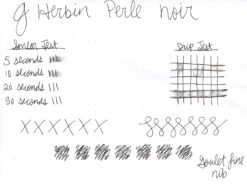 J Herbin Perle noir
Smear Test
Drip Test
5 seconds
10 seconds
20 seconds
30 seconds
XXXXXX
Goulet fine
nib